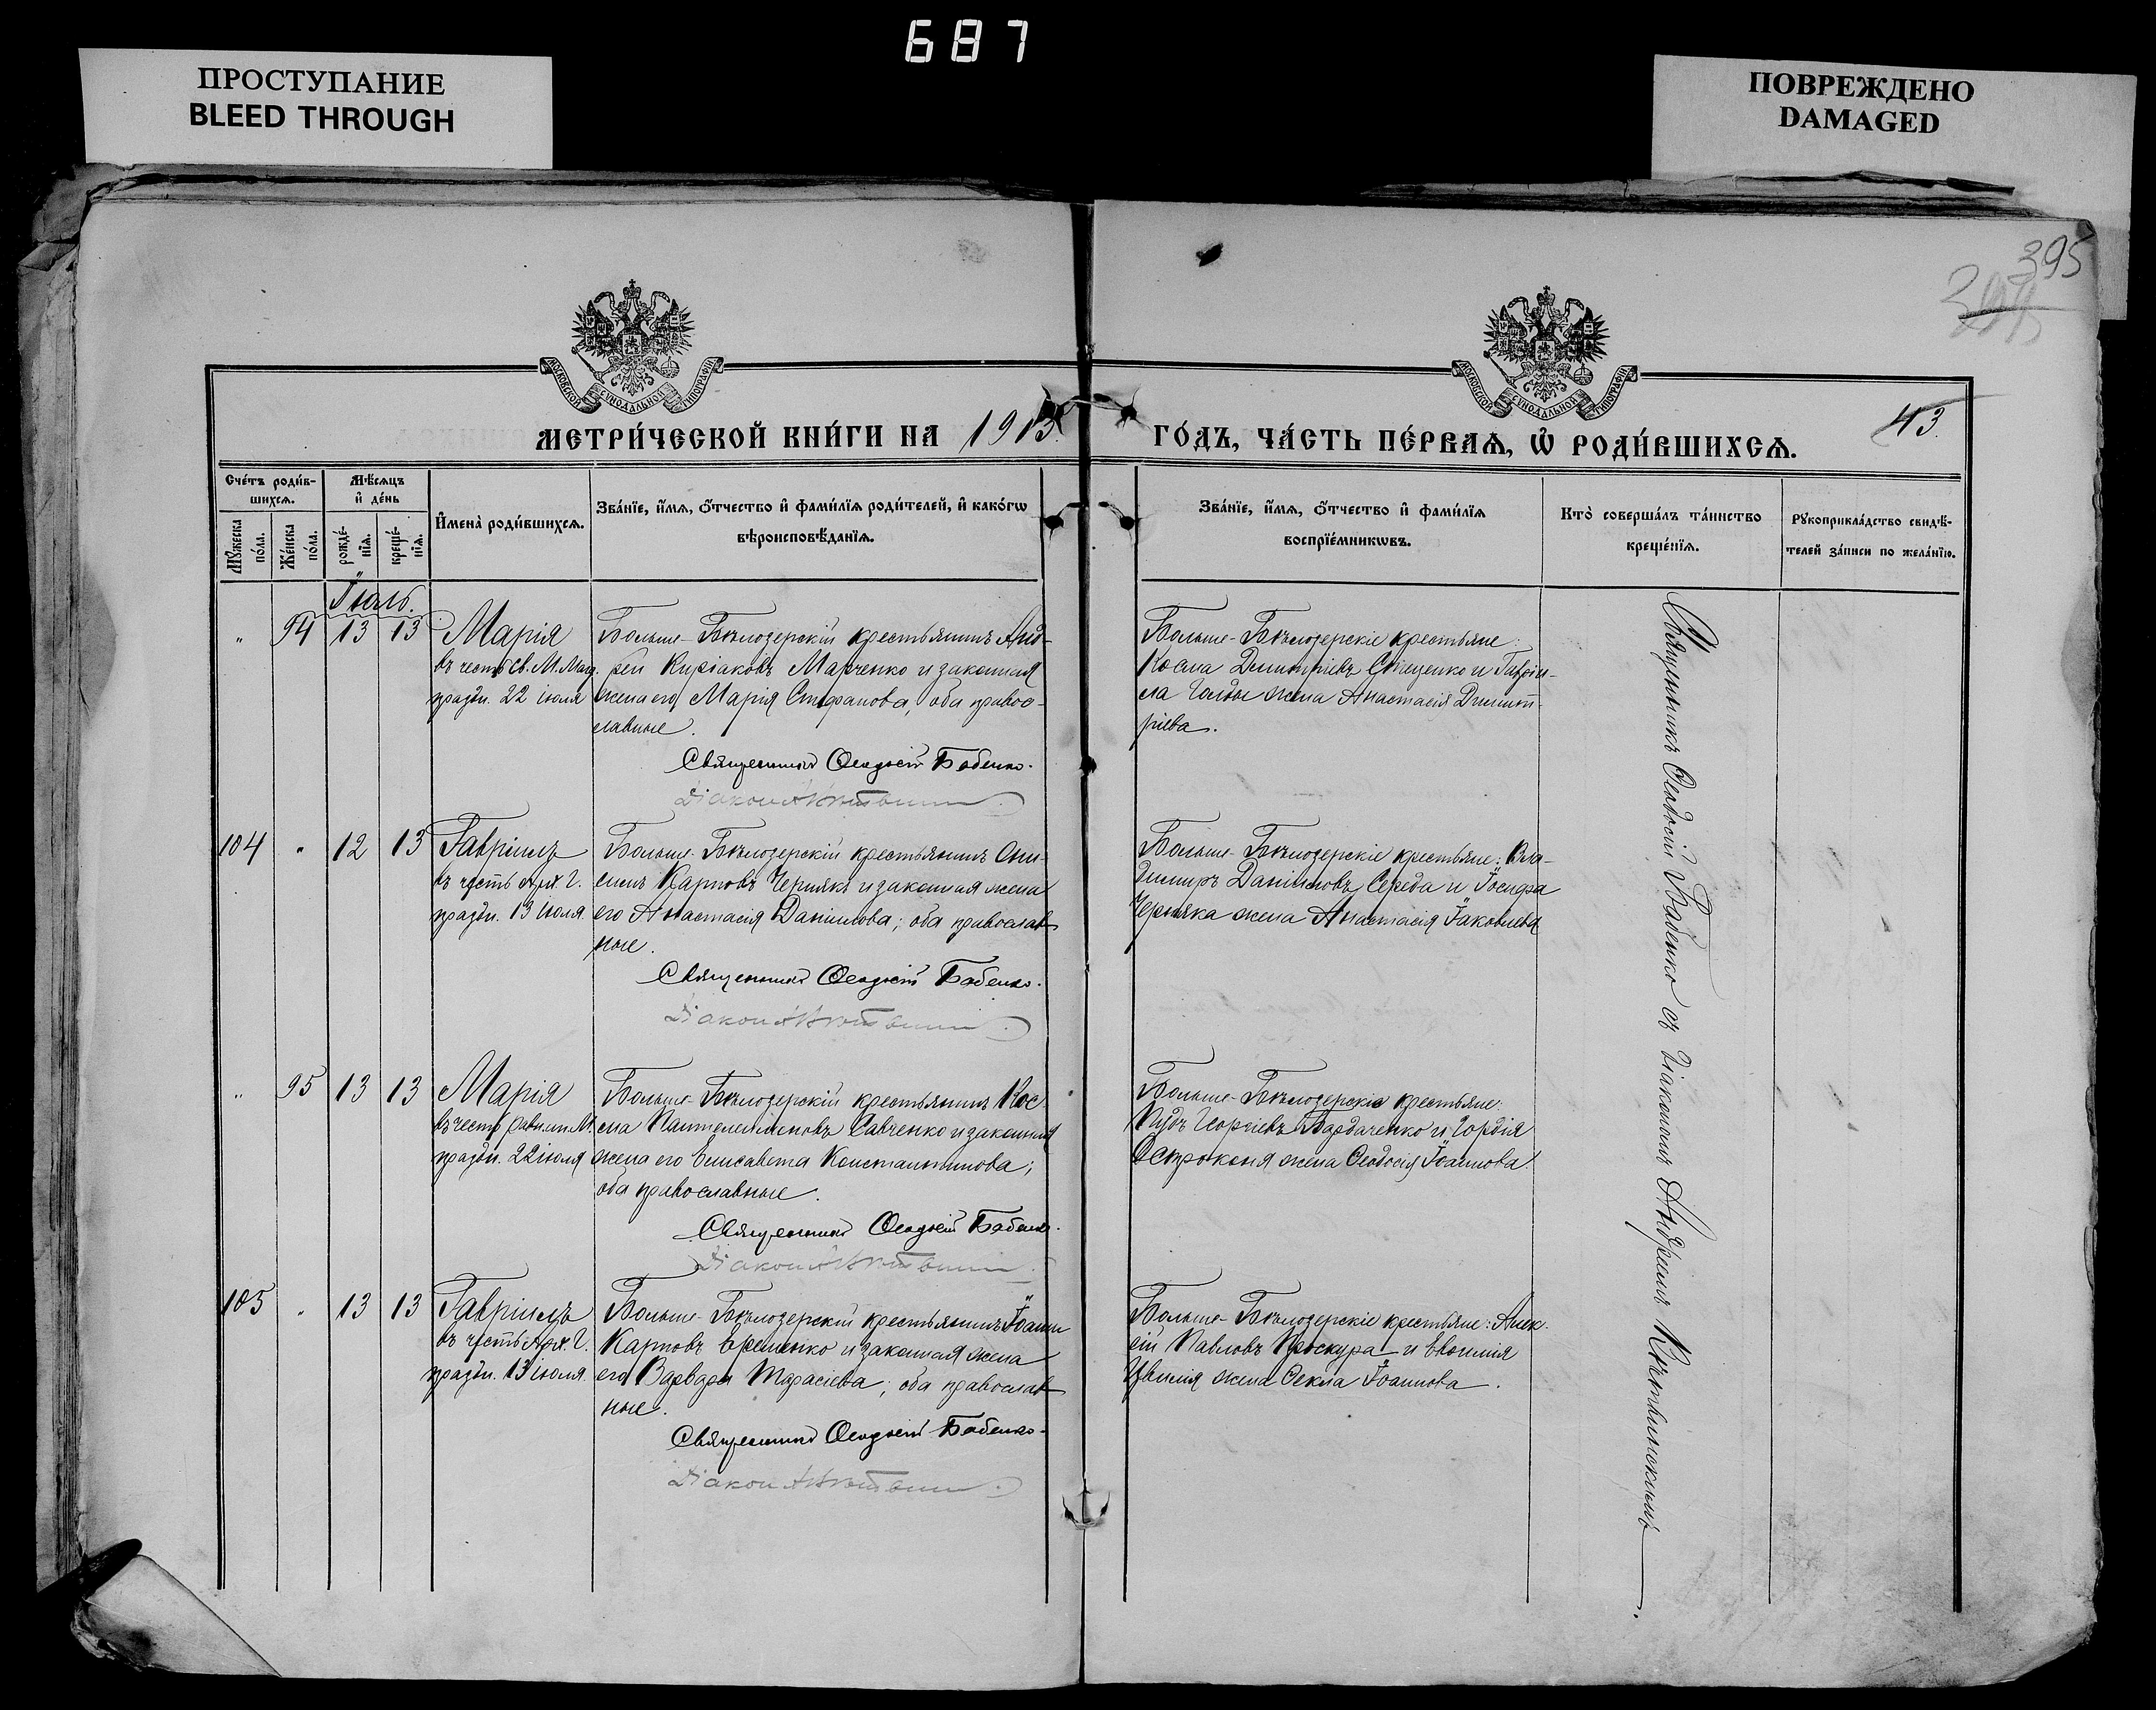 687
ПРОСТУПАНИЕ
BLEED THROUGH
ПОВРЕЖДЕНО
DAMAGED
395
МОСКОВСКОЙ СѴНОДАЛЬНОЙ ТИПОГРАФІИ
МОСКОВСКОЙ СѴНОДАЛЬНОЙ ТИПОГРАФІИ
43.
МЕТРИ́ЧЕСКОЙ КНИ́ГИ НА 1913 ГО́ДЪ, ЧА́СТЬ ПЕ́РВАѦ, Ѡ҆ РОДИ́ВШИХСѦ.
Сче́тъ роди́в-
шихсѧ.
Мꙋ́жеска
по́ла.
Же́нска
по́ла.
Мѣ́сѧцъ
и҆ де́нь
рожде́-
нїѧ.
креще́-
нїѧ.
И҆мена̀ роди́вшихсѧ.
Зва́нїе, и҆́мѧ, ѻ҆́тчество и҆ фами́лїѧ роди́телей, и҆ како́гѡ
вѣроисповѣ́данїѧ.
Зва́нїе, и҆́мѧ, ѻ҆́тчество и҆ фами́лїѧ
воспрїе́мникѡвъ.
Кто̀ соверша́лъ та́инство
креще́нїѧ.
Рꙋкоприкла́дство свидѣ́-
телей за́писи по жела́нїю.
Іюль.
" 94 13 13 Марія
въ честь св. М. Магд.
праздн. 22 іюля
Больше-Бѣлозерскій крестьянинъ Анд-
рей Киріаковъ Марченко и законная
жена его Марія Стефанова, оба право-
славные.
Священникъ Ѳеодосій Бабенко.
Діаконъ
Больше-Бѣлозерскіе крестьяне:
Косма Димитріевъ Стеценко и Гаврiи-
ла Голды жена Анастасія Димит-
ріева.
104 " 12 13 Гавріилъ
въ честь Арх. Г.
праздн. 13 іюля.
Больше-Бѣлозерскій крестьянинъ Они-
симъ Карповъ Чернякъ и законная жена
его Анастасія Даніилова; оба православ-
ные.
Священникъ Ѳеодосій Бабенко.
Діаконъ
Больше-Бѣлозерскіе крестьяне: Вла-
димиръ Даніиловъ Середа и Іосифа
Черняка жена Анастасія Іаковлева
" 95 13 13 Марія
въ честь равноап. М.
праздн. 22 іюля
Больше-Бѣлозерскій крестьянинъ Кос-
ма Пантелеимоновъ Савченко и законная
жена его Елисавета Константинова;
оба православные.
Священникъ Ѳеодосій Бабенко.
Діаконъ
Больше-Бѣлозерскіе крестьяне:
Георгіевъ и Гордія
жена Ѳеодосія Іоаннова.
105 " 13 13 Гавріилъ
въ честь Арх. Г.
праздн. 13 іюля.
Больше-Бѣлозерскій крестьянинъ Іоаннъ
Карповъ Еременко и законная жена
его Варвара Тарасіева; оба православ-
ные.
Священникъ Ѳеодосій Бабенко.
Діаконъ
Больше-Бѣлозерскіе крестьяне: Алек-
сій Павловъ Проскура и Евѳимія
жена Ѳекла Іоаннова.
Священникъ Ѳеодосій Бабенко съ діакономъ Андреемъ